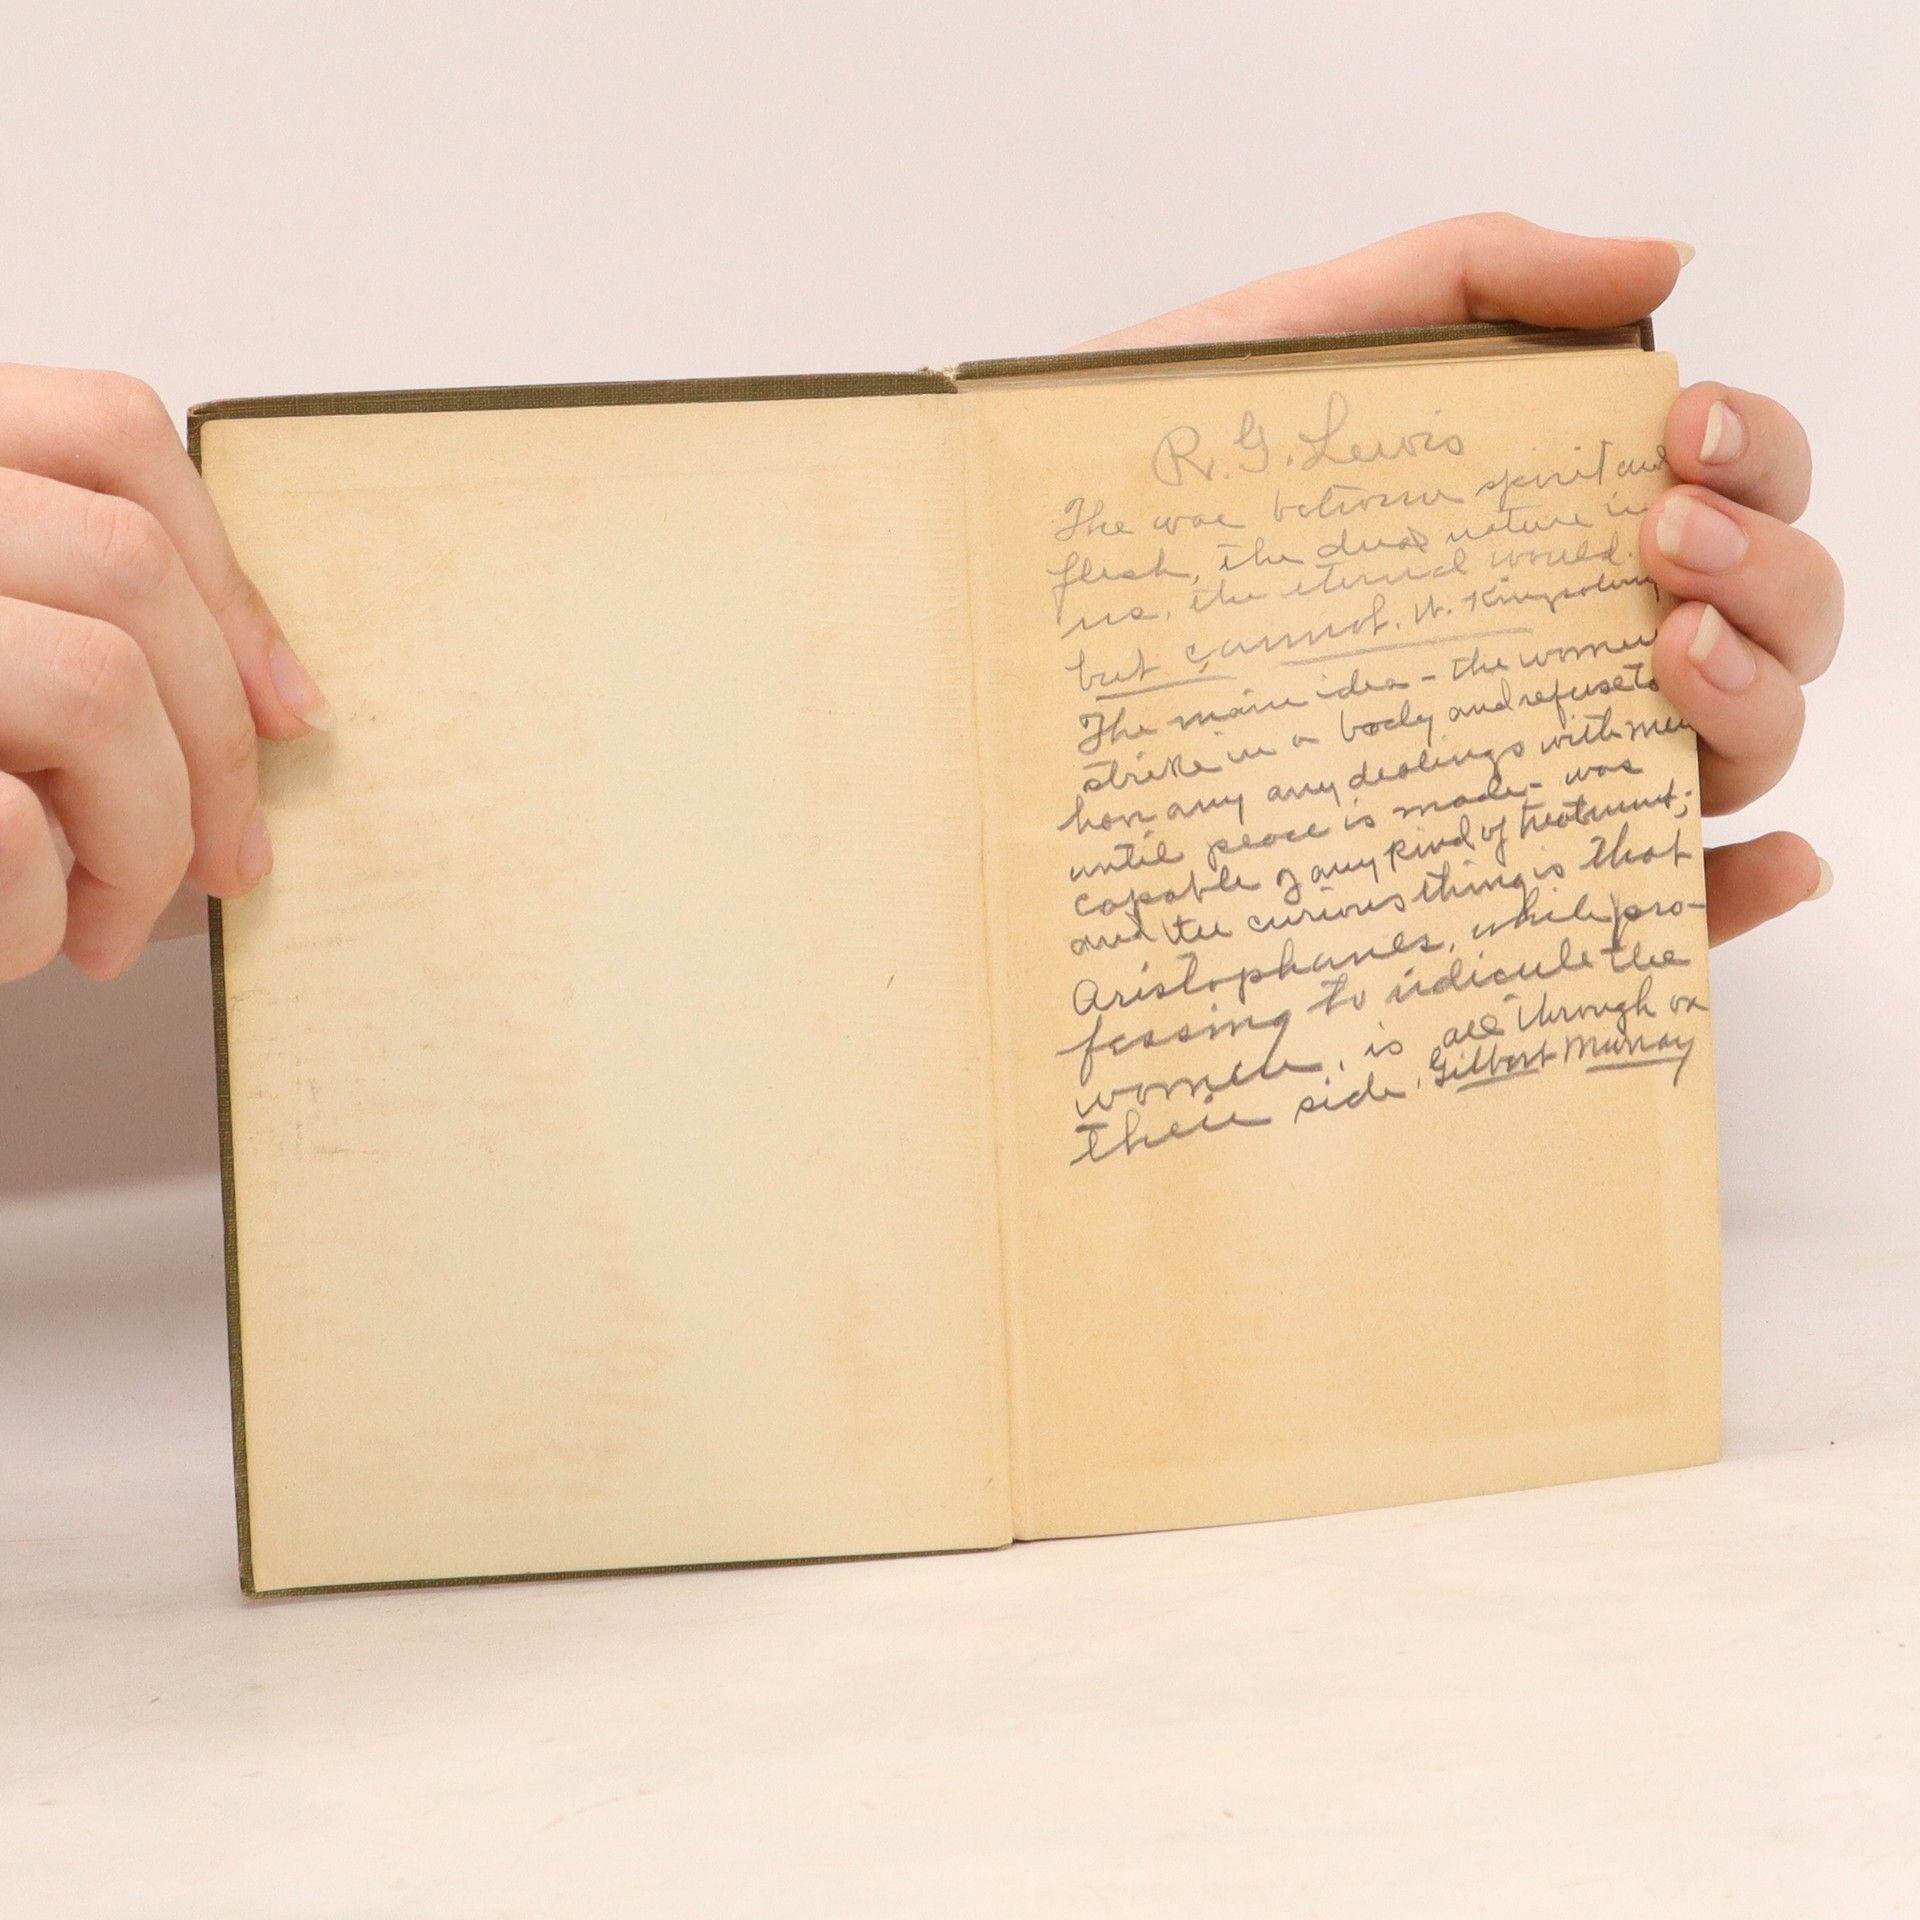 R. G. Lewis
The war between spirit and
flesh, the dual nature in
us, the eternal would
but cannot. H. Kingsolving
The main idea - the women
strike in a body and refuse to
have any any dealings with men
until peace is made - was
capable of any kind of treatment;
and the curious thing is that
Aristophanes, while pro-
fessing to ridicule the
women, is all through on
their side. Gilbert Murray